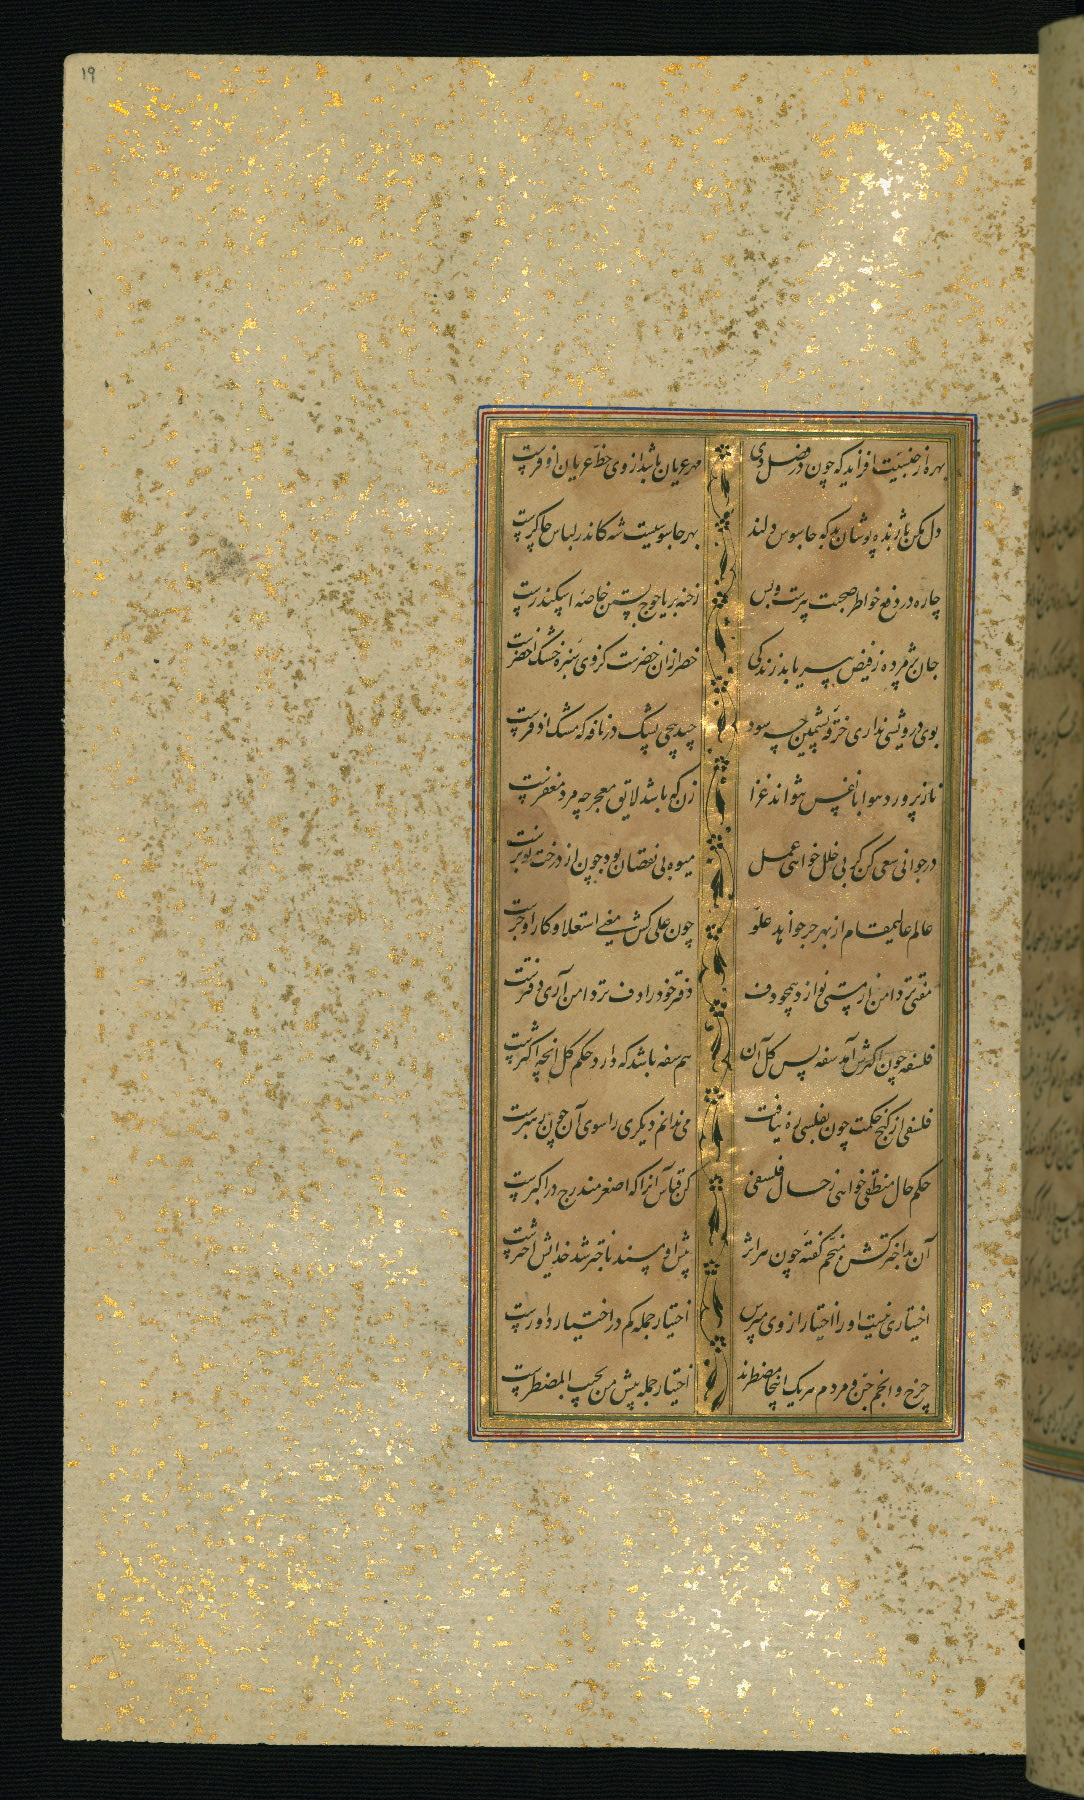 ۱۹
بهره ز جنسیت افزاید که چون در فصل دی مهر عریان باشد از وی حظ عریان اوفرست
دل مکن با ژنده پوشان بد که جاسوس دلند بهر جاسوسیست شه کاندر لباس چاکرست
چاره در دفع خواطر صحبت پیرست و بس رخنه بر یاجوج بستن خاصه اسکندرست
جان پژمرده ز فیض پیر یابد زندگی خضر ازان خضرست کز وی سبزه خشک اخضرست
بوی درویشی نداری خرقه پشمین چه سود چند پیچی پشک در نافه که مشک اذفرست
نازپرورد هوا با نفس نتواند غزا زن که باشد لایق معجر چه مرد مغفرست
در جوانی سعی کن گر بی خلل خواهی عمل میوه بی نقصان بود چون از درخت نوبرست
عالم عالیمقام از بهر جر خواهد علو چون علی کش معنی استعلا و کار او جرست
مفتی تر دامن ار مستی نوازد همچو دف دفتر خود را دف تر دامن آری دفترست
فلسفه چون اکثرش آمد سفه پس کل آن هم سفه باشد که دارد حکم کل آنچه اکثرست
فلسفی از گنج حکمت چون بفلسی ره نیافت می ندانم دیگری را سوی آن چون رهبرست
حکم حال منطقی خواهی ز حال فلسفی کن قیاس آنرا که اصغر مندرج در اکبرست
آن بد اختر کش منجم گفته چون هر اثر پیش او مسند باختر شد خدایش اخترست
اختیاری نیست او را اختیار از وی مپرس اختیار جمله گم در اختیار داورست
چرخ و انجم جن و مردم هر یک اینجا مضطرند اختیار جمله پیش من یجیب المضطرست